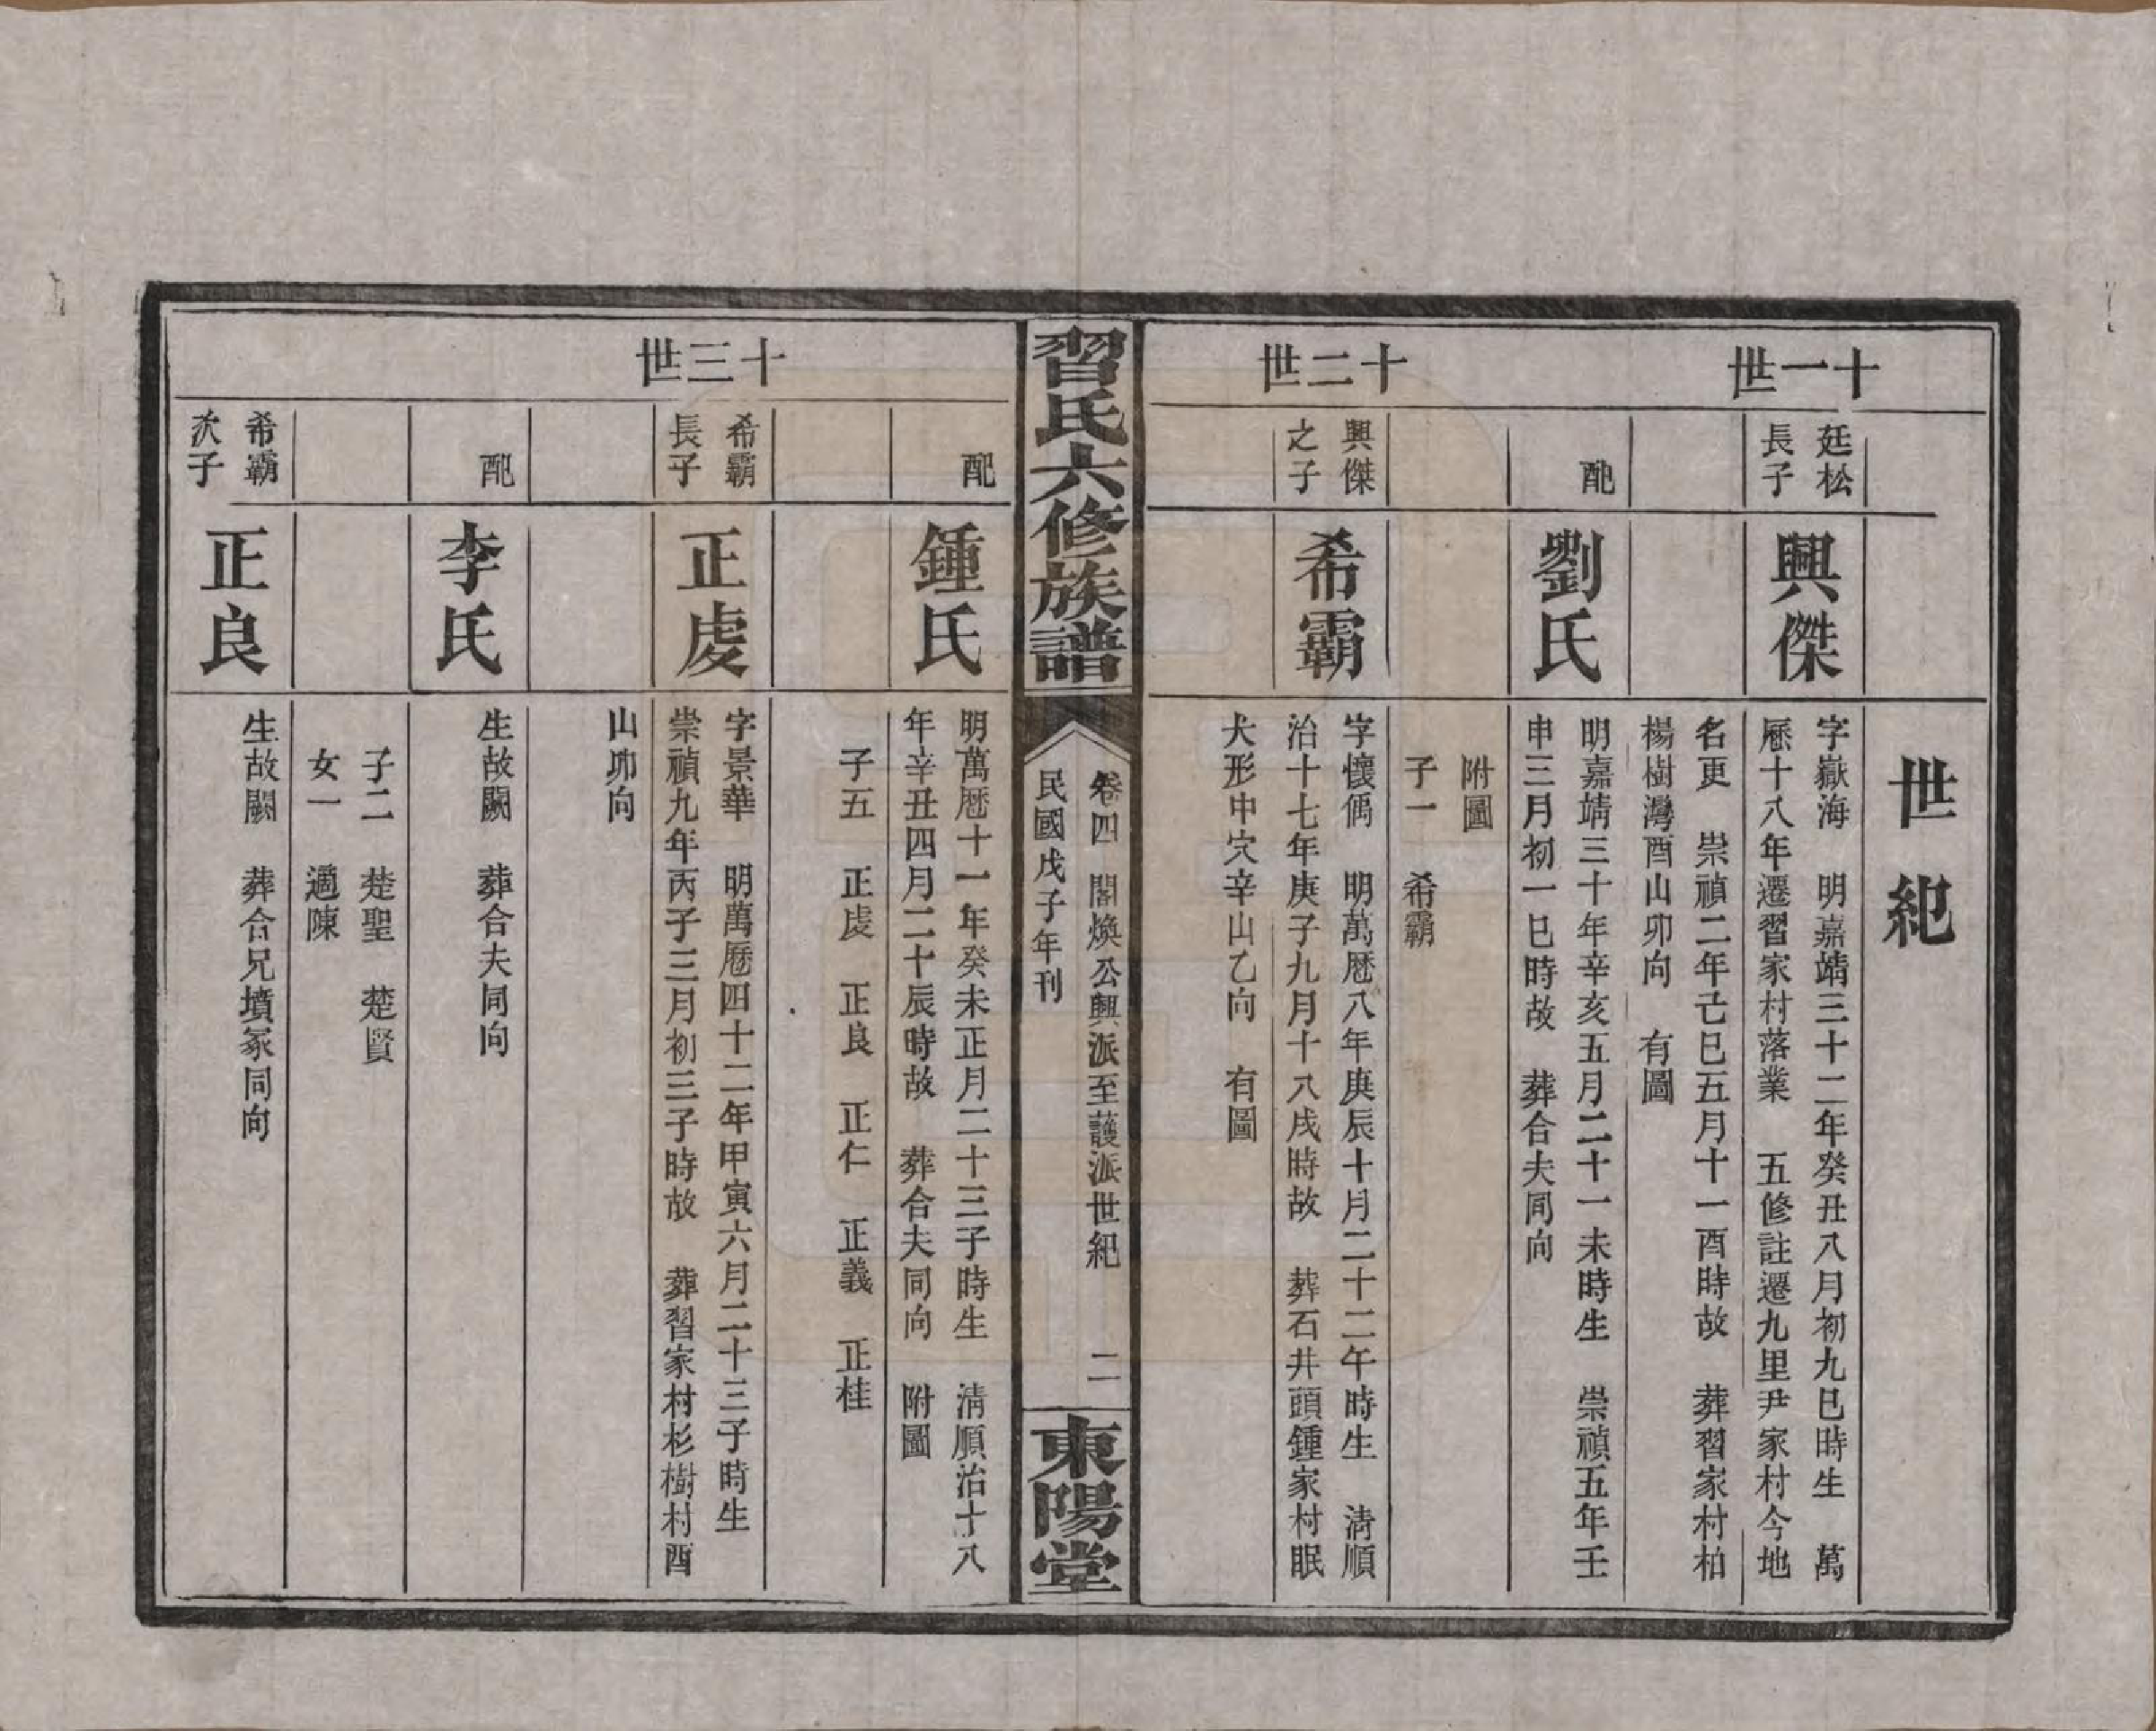 世紀
十一世
廷松
長子
興傑
字嶽海　明嘉靖三十二年癸丑八月初九巳時生　萬
曆十八年遷習家村落業　五修註遷九里尹家村今地
名更　崇禎二年己巳五月十一酉時故　葬習家村柏
楊樹灣酉山卯向　有圖
配
劉氏
明嘉靖三十年辛亥五月二十一未時生　崇禎五年壬
申三月初一巳時故　葬合夫同向
附圖
子一　希霸
十二世
興傑
之子
希霸
字懷偊　明萬曆八年庚辰十月二十二午時生　清順
治十七年庚子九月十八戌時故　葬石井頭鍾家村眠
犬形中穴辛山乙向　有圖
習氏六修族譜
卷四　閣煥公興派至護派世紀　二
民國戊子年刊
東陽堂
配
鍾氏
明萬曆十一年癸未正月二十三子時生　清順治十八
年辛丑四月二十辰時故　葬合夫同向　附圖
子五　正虔　正良　正仁　正義　正桂
十三世
希霸
長子
正虔
字景華　明萬曆四十二年甲寅六月二十三子時生
崇禎九年丙子三月初三子時故　葬習家村杉樹村酉
山卯向
配
李氏
生故闕　葬合夫同向
子二　楚聖　楚賢
女一　適陳
希霸
次子
正良
生故闕　葬合兄墳冢同向